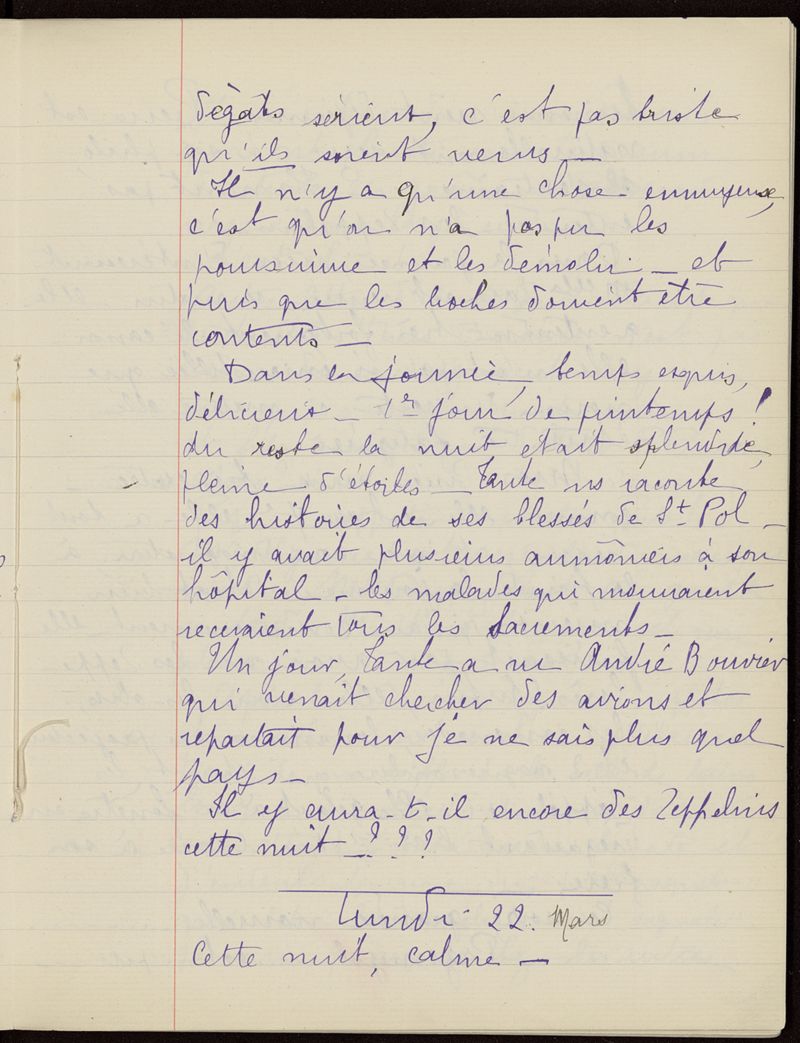 dégats sérieux, c'est pas triste
qu'ils soient venus —
Il n'y a qu'une chose ennuyeuse,
c'est qu'on n'a pas pu les
poursuivre et les démolir — et
puis que les boches doivent être
contents —
Dans la journée, temps exquis,
délicieux — 1er jour de printemps !
du reste la nuit était splendide,
pleine d'étoiles — Tante ns raconte
des histoires de ses blessés de St Pol —
il y avait plusieurs aumôniers à son
hôpital — les malades qui mouraient
recevaient tous les Sacrements —
Un jour, Tante a vu André Bouvier
qui venait chercher des avions et
repartait pour je ne sais plus quel
pays —
Il y aura-t-il encore des Zeppelins
cette nuit — ? ? ?
Lundi 22. Mars
Cette nuit, calme —